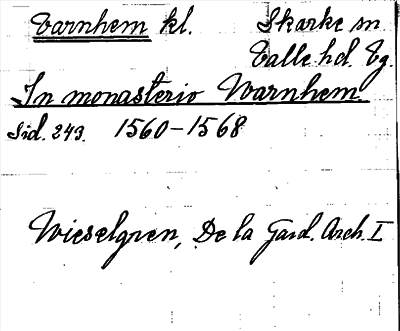 Varnhem kl. Skarke sn
Valle hd. Vg.
In monasterio Warnhem.
Sid. 243. 1560-1568
Wieselgren, De la Gard. Arch. I